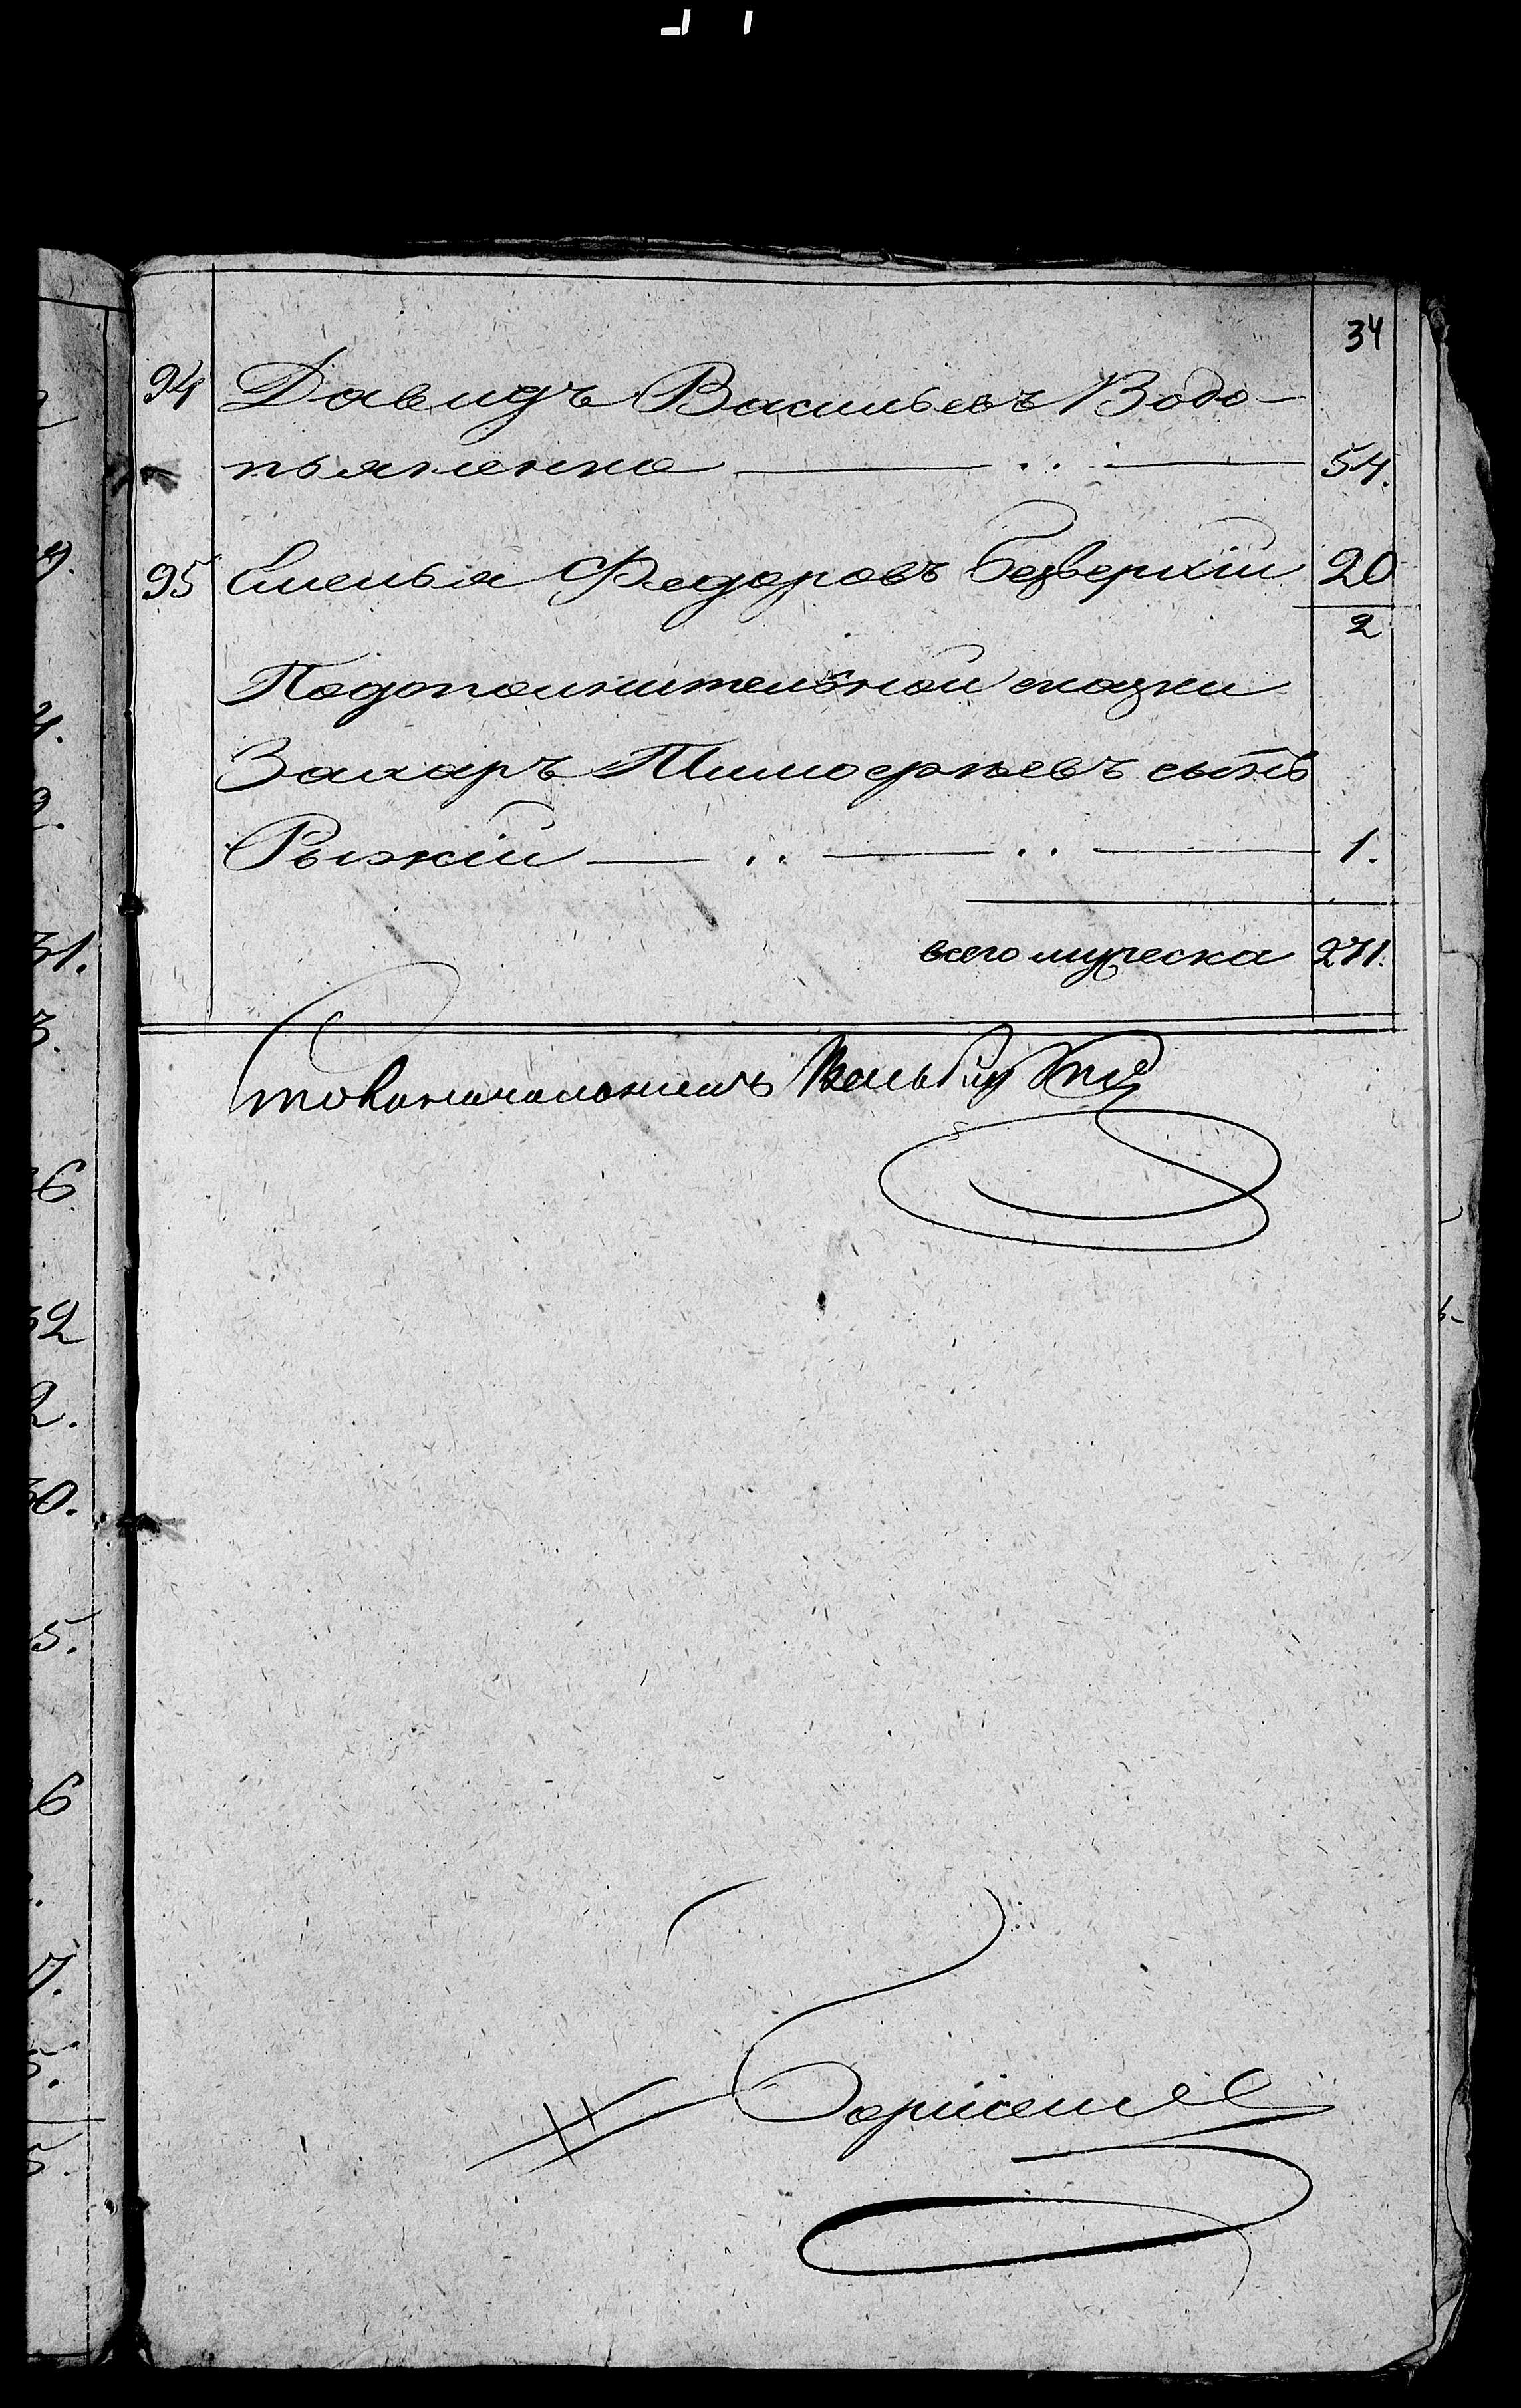 34
94 Давидъ Васильевъ Водо-
пьяненко 54.
95 Емельян Федоровъ Безверхій 20
2
Подополнительной сказки
Захаръ Тимофѣевъ сынъ
Рыжій 1.
всего мужеска 271.
Столоначальникъ
9.
4.
9.
31.
3.
6.
32
2.
30.
5.
6
7.
5.